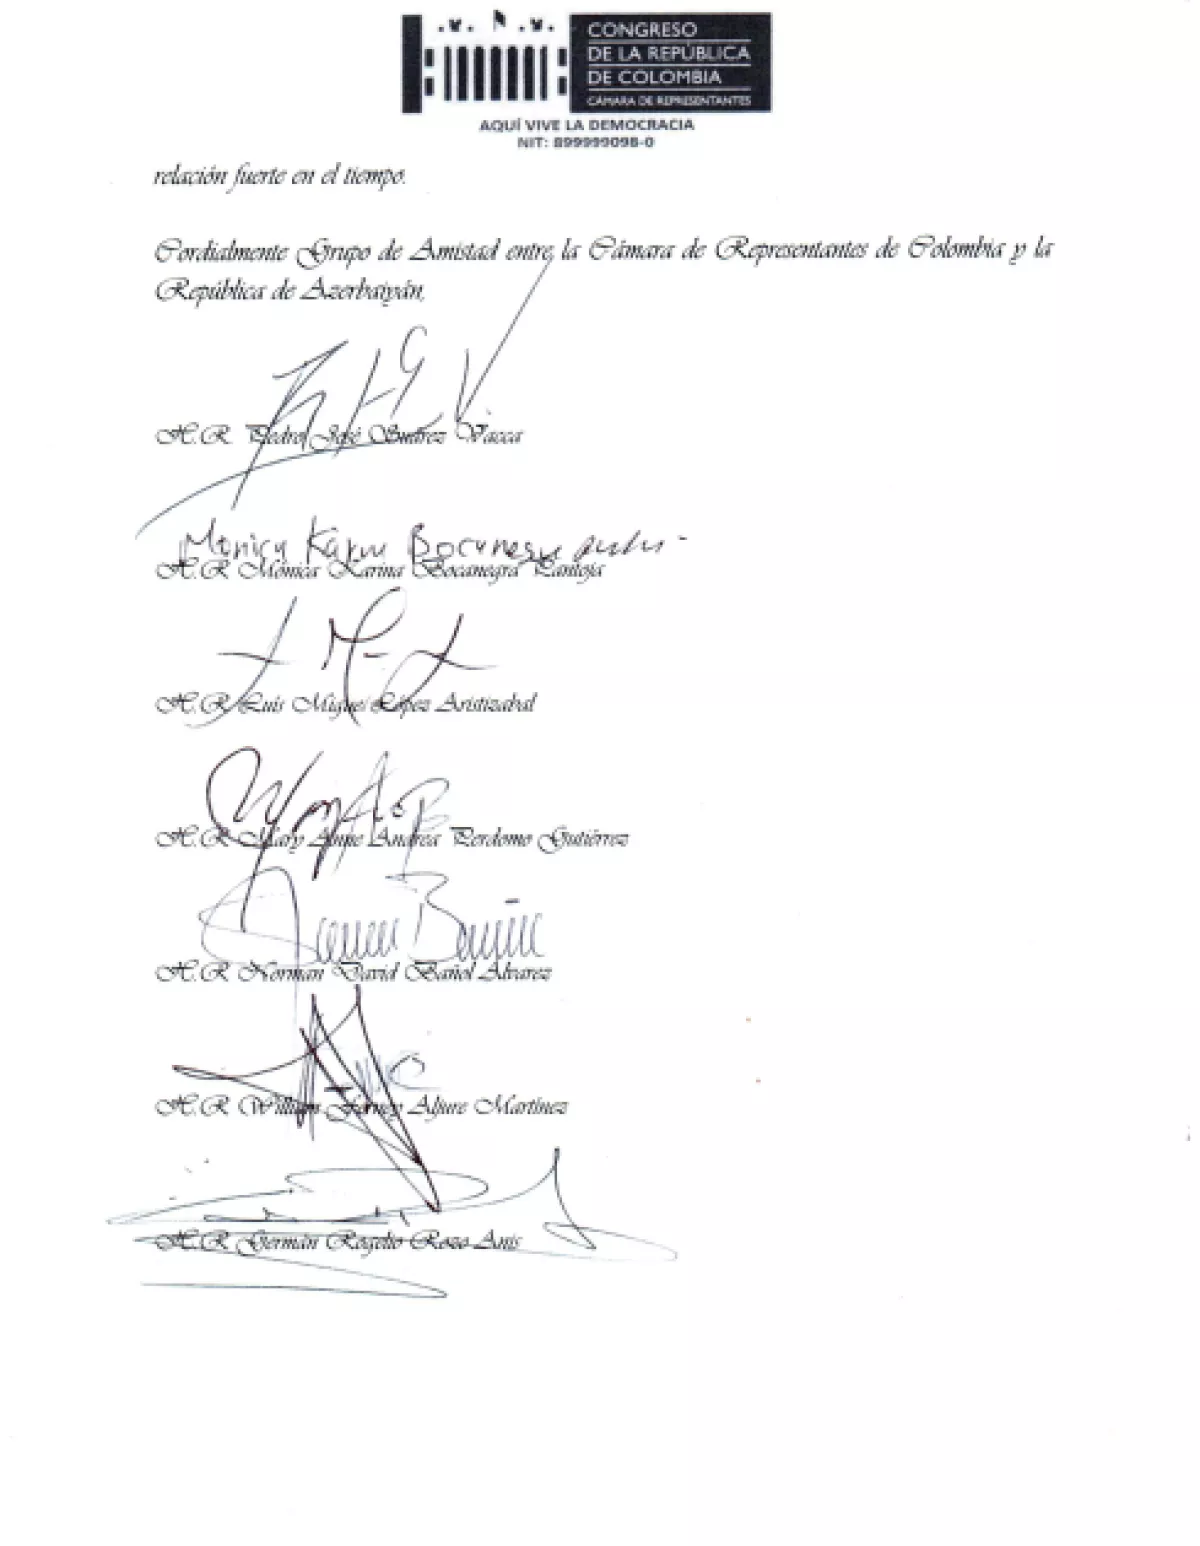 CONGRESO
DE LA REPÚBLICA
DE COLOMBIA
CÁMARA DE REPRESENTANTES
AQUÍ VIVE LA DEMOCRACIA
NIT: 899999098-0
relación fuerte en el tiempo.
Cordialmente Grupo de Amistad entre la Cámara de Representantes de Colombia y la
República de Azerbaiyán,
H.R. Pedro José Suárez Vacca
Monica Karina Bocanegra
H.R. Mónica Karina Bocanegra Pantoja
H.R. Luis Miguel López Aristizabal
H.R. Mary Anne Andrea Perdomo Gutiérrez
H.R. Norman David Bañol Álvarez
H.R. William Ferney Aljure Martínez
H.R. Germán Rogelio Rozo Anis